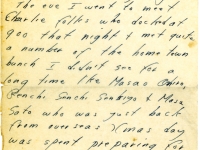 The eve I went to meet
Charlie folks who docked at
900 that night & met quite
a number of the hometown
bunch I didn't see for a
long time like Masao
Kenchi Senchi & Masa
Sato who was just back
from overseas Xmas day
was spent preparing for